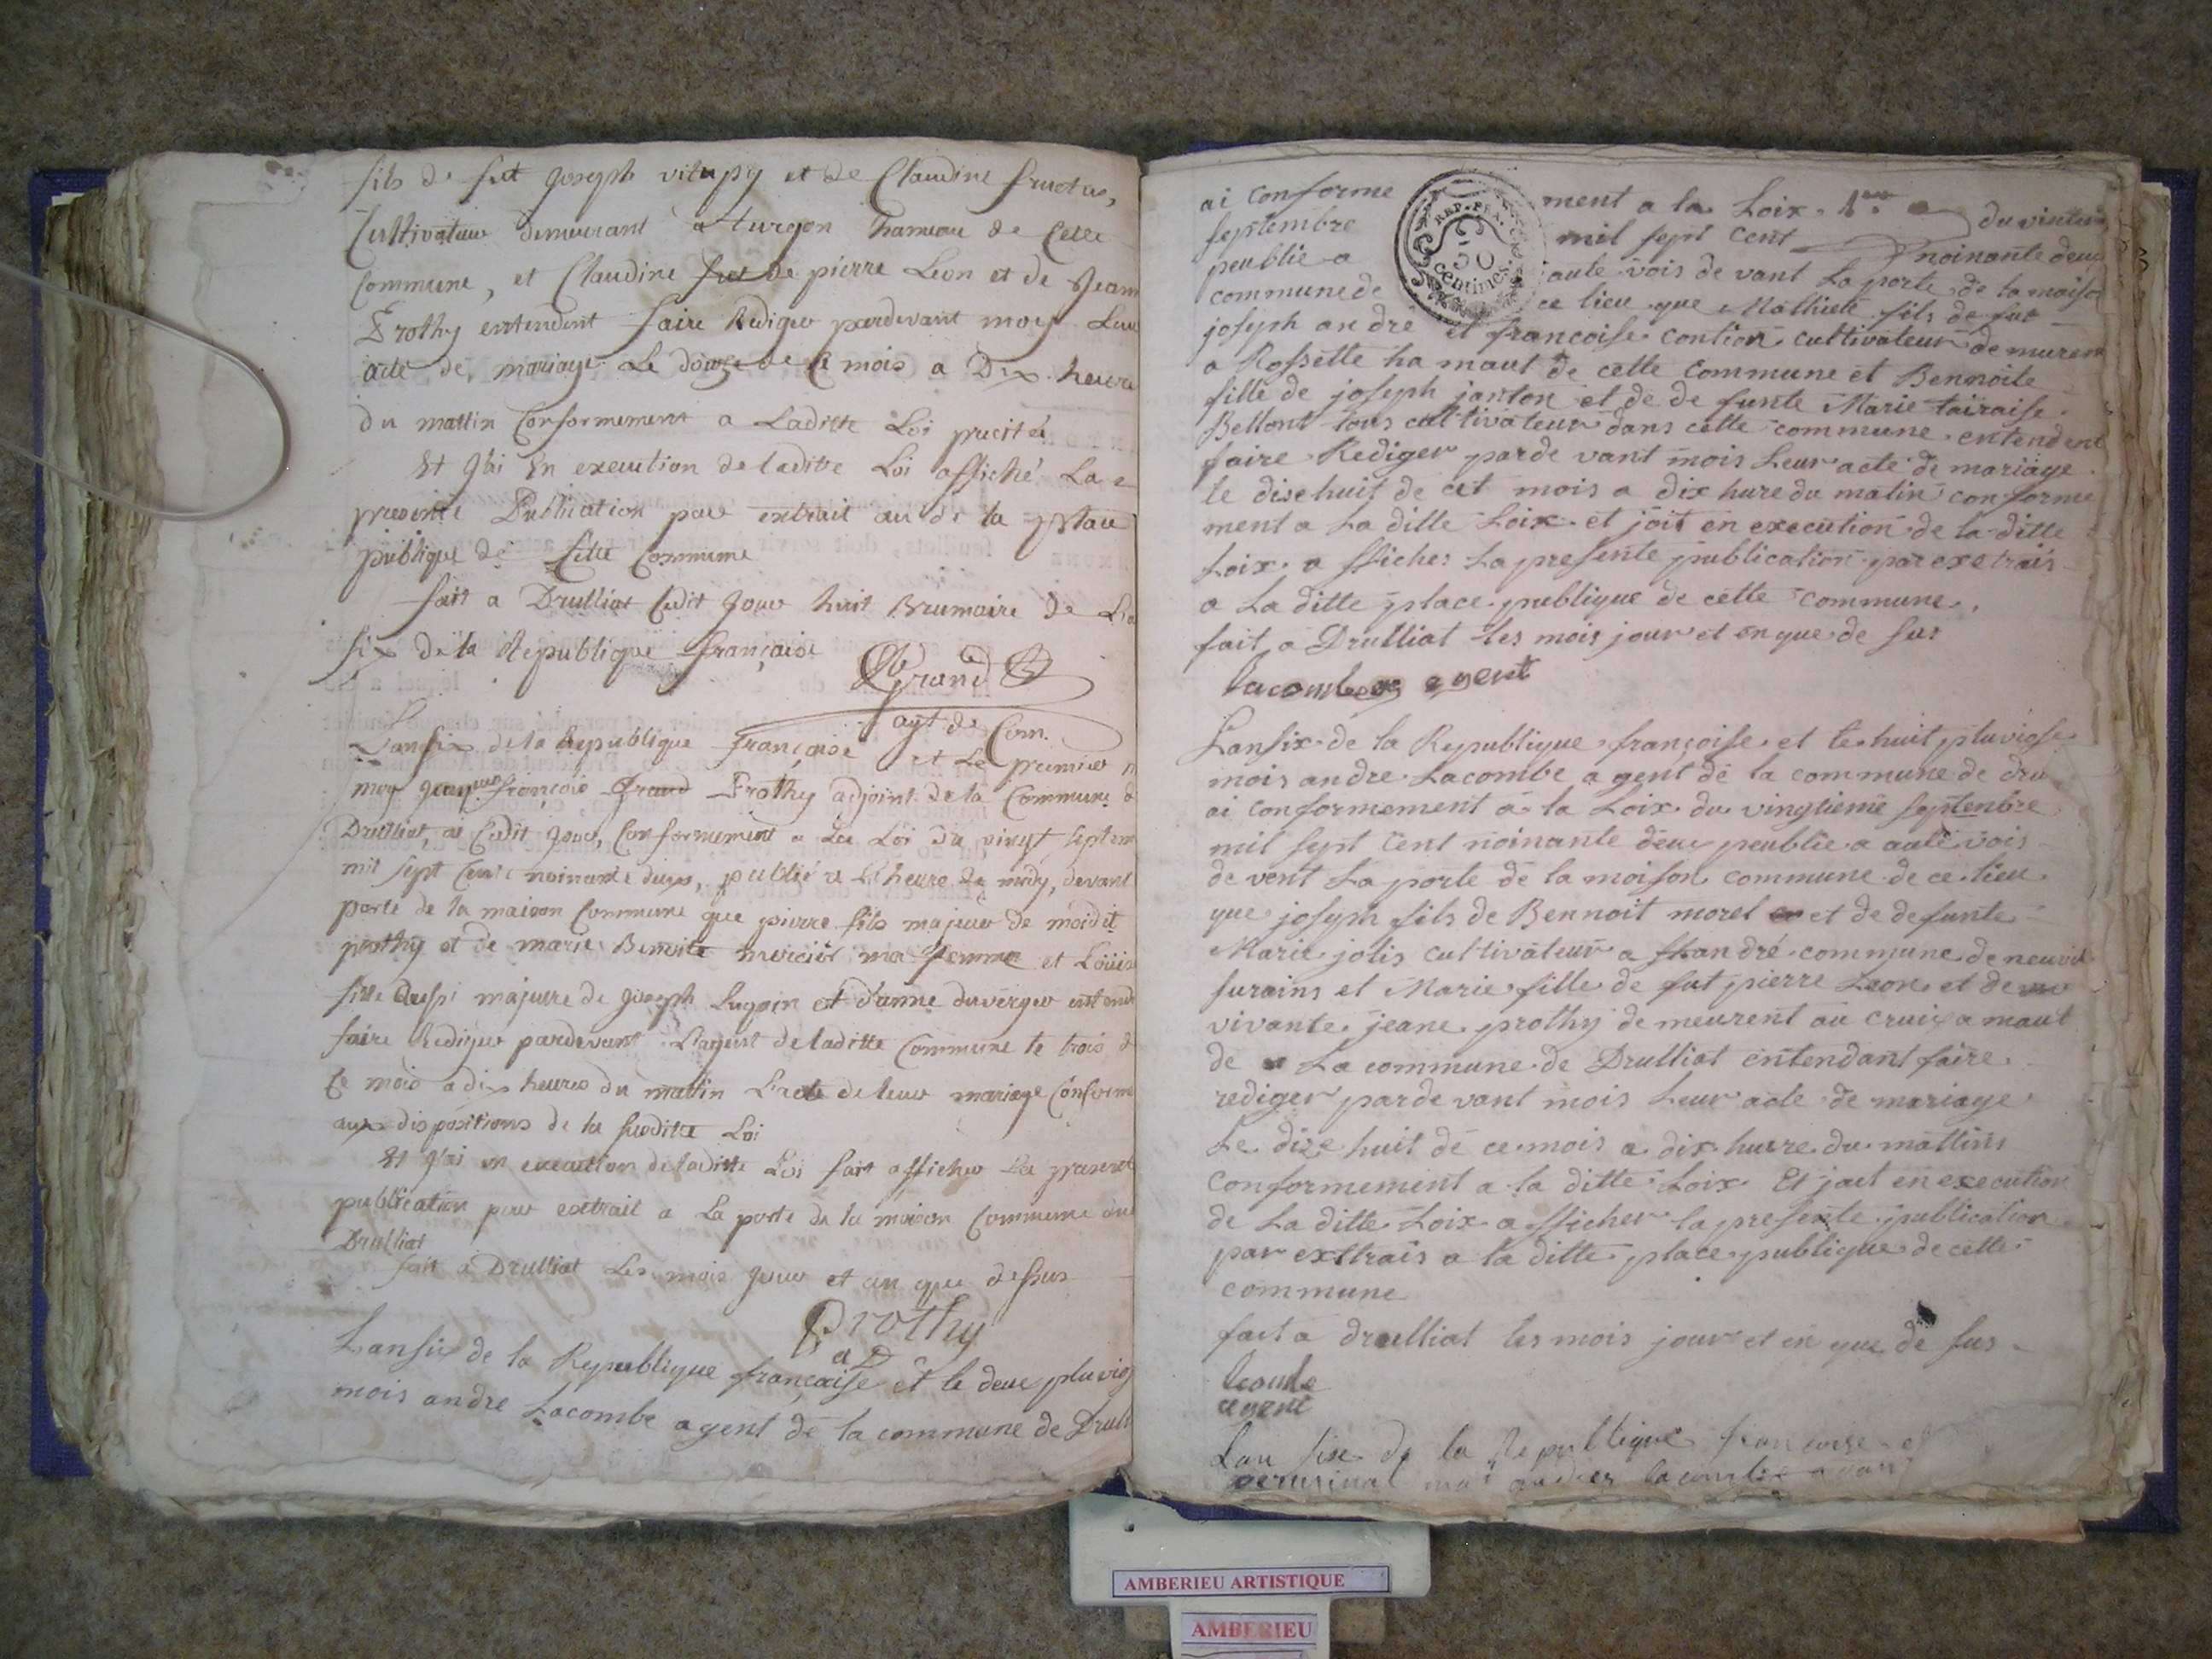 fils de fut joseph vitupy et de Claudine fructus,
Cultivateur demeurant a turgon hameau de Cette
Commune, et Claudine de pierre Leon et de Jeann
Prothy entendent faire Rediger pardevant moy Leur
acte de mariage Le douze de Ce mois a Dix heure
du mattin Conformement a Laditte Loi precitée
Et J'ai En execution de laditte Loi affiché La
presente Publication par extrait au de la place
publique de Cette Commune
fait a Drulliat Ledit Jour huit Brumaire de L'a
Six de la Republique française
Grand
agt de Com.
L'an Six de la Republique française et Le premier
moy françois Grand Prothy adjoint de la Commune d
Drulliat, ai Ledit Jour, Conformement a La Loi du vingt Septem
mil Sept Cent noinante deux, publié a L'heure de midy, devant
porte de la maison Commune que pierre fils majeur de moidit
prothy et de marie Benoite mercier ma femme et Louise
fille majeure de Joseph Lugoin et d'anne duverger entend
faire Rediger pardevant L'agent de laditte Commune le trois d
Ce mois a dix heures du mattin L'acte de leur mariage Conforme
aux dispositions de la Susditte Loi
Et J'ai en execution de laditte Loi fait afficher La present
publication par extrait a La porte de la maison Commune du
Drulliat
fait a Drulliat Les mois Jour et an que dessus
Prothy
ad
Lansix de la Republique française et le deux pluvio
mois andre Lacombe agent de la commune de Drull
ai conforme ment a la Loix du vintieme
septembre mil sept cent noinante deux
peublie a aute vois de vant La porte de la maison
commune de ce lieu que Mathieu fils de fut
joseph andré et francoise contion cultivateur demuren
a Rossette ha maut de cette commune et Bennoite
fille de joseph janton et de de funte Marie tairaise
Bellont tous cultivateur dans cette commune entendent
faire Rediger parde vant mois Leur acte de mariage
le dise huit de cet mois a dix hure du matin conforme
ment a La ditte Loix et joit en execution de la ditte
Loix a fficher La presente publication par exe trais
a La ditte place publique de cette commune.
fait a Drulliat les mois jour et en que de sus
lacombe agent
REP. FRA.
50
centimes
Lansix de la Republique françoise et le huit pluviose
mois andre Lacombe agent de la commune de dru
ai conformement a la Loix du vingtieme septenbre
mil sept cent noinante deux peublie a aute vois
de vent La porte de la moison commune de ce lieu
que joseph fils de Bennoit morel et de defunte
Marie jolis cultivateur a st andré commune de neuvil
surains et Marie fille de fut pierre Leon et de
vivante jeane prothy de meurent au cruix a maut
de La commune de Drulliat entendant faire
rediger parde vant mois Leur acte de mariage
Le dize huit de ce mois a dix hure du mattins
conformement a la ditte Loix Et jait en execution
de La ditte Loix a fficher la presente publication
par exttrais a la ditte place publique de cette
commune
fait a drulliat les mois jour et en que de sus
lacombe
agent
Lan six de la Republique françoise et
germinal moi andrer lacombe agant
AMBERIEU ARTISTIQUE
AMBERIEU